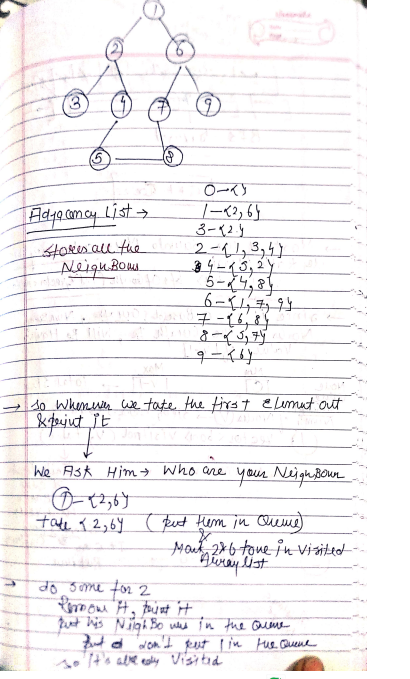 1
2 6
3 4 7 9
5 8
0-{}
Adjacancy List → 1-{2,6}
3-{2}
stores all the 2-{1,3,4}
Neighbours 4-{5,2}
5-{4,8}
6-{1,7,9}
7-{6,8}
8-{5,7}
9-{6}
→ so whenever we take the first Element out
& print it
We Ask Him → Who are your Neighbour
1-{2,6}
take {2,6} (put them in Queue)
&
Mark 2&6 true in Visited
Array list
→ do same for 2
Remove it, print it
put his Neighbours in the Queue
but don't put 1 in the Queue
so It's already Visited